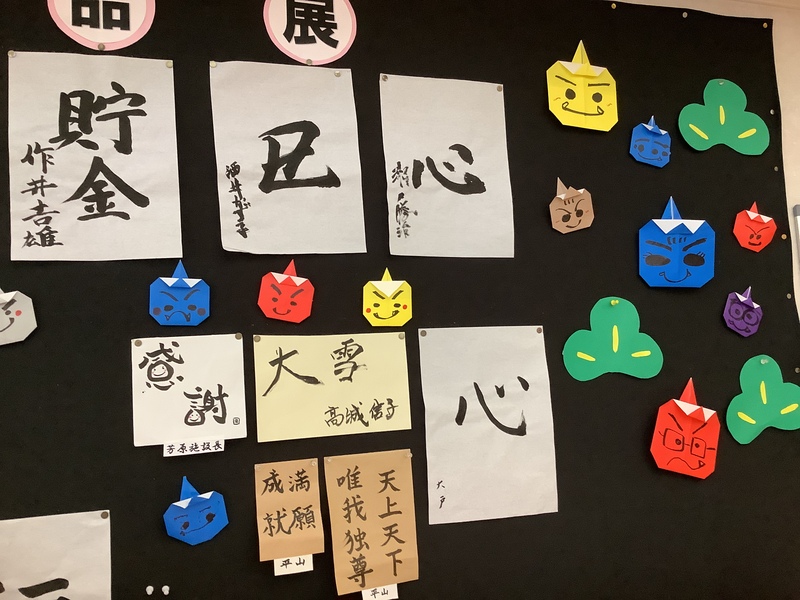 品
展
貯金
作井吉雄
丑
心
感謝
芳原施設長
大雪
高城信子
心
大戸
満願
成就
平山
天上天下
唯我独尊
平山